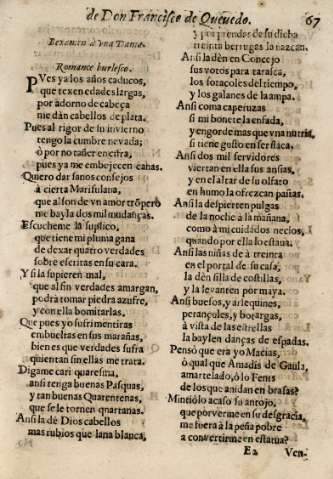 de Don Francisco de Quevedo. 67
Romance burlesco.
PVes ya los años caducos,
que texen edades largas,
por adorno de cabeça
me dàn cabellos de plata.
Pues al rigor de lu invierno
tengo la cumbre nevada;
ò por no nacer encifra,
pues ya me embejecen canas.
Quiero dar sanos consejos
à cierta Marisulana,
que al son de vn amor trõpero
me bayla dos mil mudanças.
Escucheme la suplico,
que tiene mi pluma gana
de dexar quatro verdades
sobre escritas en su cara.
Y si la supieren mal,
que al fin verdades amargan,
podrà tomar piedra azufre,
y con ella bomitarlas.
Que pues yo sufri mentiras
embueltas en sus marañas,
bien es que verdades sufra
quien tan sin ellas me trata.
Digame cari quaresma,
ansi tenga buenas Pasquas,
y tan buenas Quarentenas,
que se le tornen quartanas.
Ansi la dè Dios cabellos
mas rubios que lana blanca,
y por prendas de su dicha
treinta berrugas la nazcan.
Ansi la dèn en Concejo
sus votos para tarasca,
los foracoles del tiempo,
y los galanes de la ampa.
Ansi coma caperuzas
si mi bonete la enfada,
y engorde mas que vna nutria,
si tiene gusto en ser flaca.
Ansi dos mil servidores
viertan en ella sus ansias,
y en el altar de su olfato
en humo la ofrezcan pastas.
Ansi la despierten pulgas
de la noche à la mañana,
como à mi cuidados necios,
quando por ella lo estava.
Ansi las niñas de à treinta
en el portal de su casa,
la dèn silla de costillas,
y la levanten por maya.
Ansi buesos, y arlequines,
perançules, y botargas,
à vista de las estrellas
la baylen danças de espadas.
Pensò que era yo Macias,
ò qual que Amadis de Gaula,
amartelado, ò lo Fenis
de los que anidan en brasas?
Mintiòlo acaso su antojo,
que por verme en su desgracia,
me fuera à la peña pobre
a convertirme en estatua?
E2 Ven-